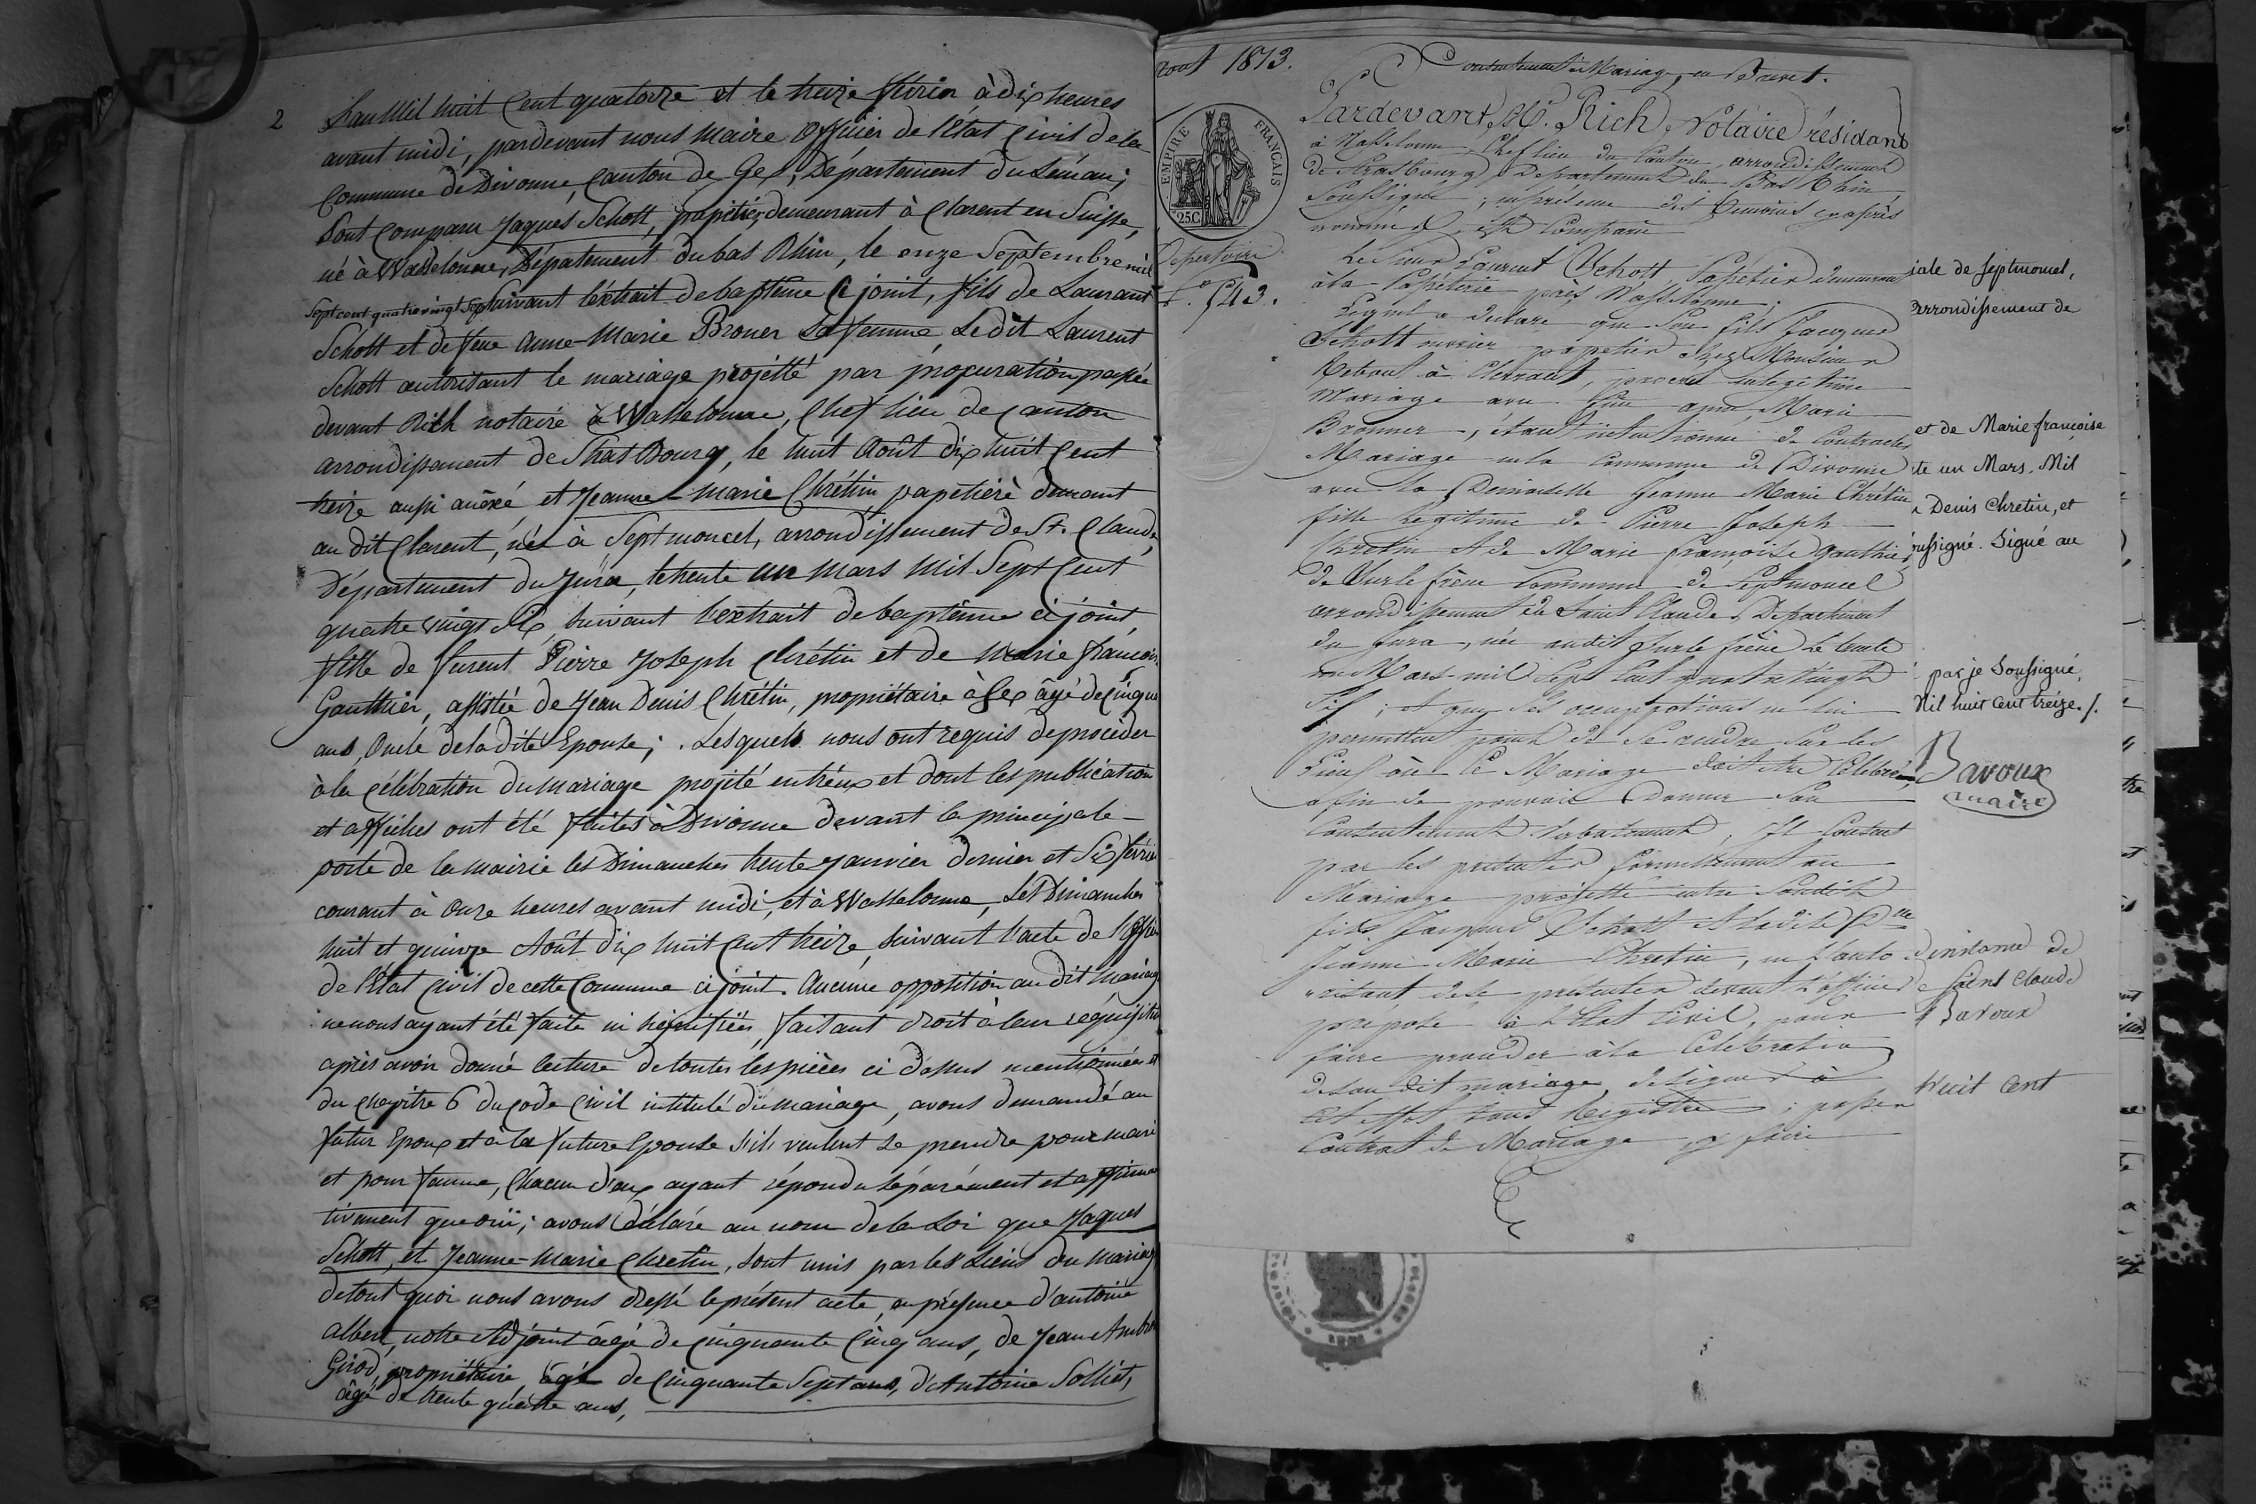 2
L'an Mil huit Cent quatorze et le treize février à dix heures
avant midi, pardevant nous Maire Officier de l'Etat Civil de la
Commune de Divonne, Canton de Gex, Département du Léman;
Sont comparu Jaques Schott, papetier, demeurant à Clarent en Suisse,
né à Wasselonne, Dépatement du bas Rhin, le onze Septembre mil
Sept cent quatre vingt sept suivant l'extrait de baptême ci joint, fils de Laurant
Schott et de feue Anne-Marie Broner sa femme, Le dit Laurent
Schott autorisant le mariage projetté par procuration passée
devant Rich notaire à Wasselonne, Chef lieu de Canton
arrondissement de Stras Bourg, le huit Août dix huit Cent
treize aussi anexé et Jeanne-Marie Chrétin papetière demeurant
au dit Clarent, née à Septmoncel, arrondissement de St. Claude,
Département du Jura, le trente un Mars Mil Sept Cent
quatre vingt six, suivant l'extrait de baptême ci joint
fille de furent Pierre Joseph Chrétin et de Marie françoise
Gauthier, assistée de Jean Denis Chrétin, propriétaire à Gex âgé de Cinquante
ans, Oncle de la dite Epouse; Lesquels nous ont requis de procéder
à la célébration du mariage projeté entr'eux et dont les publications
et affiches ont été faites à Divonne devant la principale
porte de la mairie les Dimanches trente Janvier dernier et Six fevrier
courant à Onze heures avant midi, et à Wasselonne, Les Dimanches
huit et quinze Août dix huit Cent treize, suivant l'acte de l'officier
de l'Etat Civil de cette Commune ci joint. Aucune opposition au dit mariage
ne nous ayant été faite ni signifiée, faisant droit à leur réquisition
après avoir donné lecture de toutes les pièces ci dessus mentionnées et
du chapitre 6 du Code Civil intitulé du mariage, avons demandé au
futur Epoux et à la future Epouse s'ils veulent se prendre pour mari
et pour femme, Chacun d'eux ayant répondu séparément et affirma
tivement que oui; avons déclaré au nom de la Loi que Jaques
Schott, et Jeanne-Marie Chretin, sont unis par les Liens du mariage
de tout quoi nous avons dressé le présent acte, en présence d'antoine
albert, notre Adjoint âgé de cinquante Cinq ans, de Jean Ambroise
Girod, propriétaire âgé de Cinquante Sept ans, d'Antoine Solliet,
âgé de trente quatre ans,
aout 1813.
EMPIRE FRANÇAIS
25C
Repertoire
543.
Consentement à Mariage, en Brevet.
Pardevant Me. Rich, Notaire résidant
à Wasselonne, Chef lieu du Canton, arrondissement
de Strasbourg, Departement du Bas Rhin
Soussigné, en présence des témoins cy après
nommés, est Comparu
Le Sieur Laurent Schott Papétier demeurant
à la Papéterie près Wasselonne;
Lequel a declaré que Son fils Jacques
Schott ouvrier papetier chez Monsieur
à Clarent, procréé en légitime
Mariage avec feue anne Marie
Bronner, étant intentionné de Contracter
Mariage en la Commune de Divonne
avec la Demoiselle Jeanne Marie Chrétin
fille Legitime de Pierre Joseph
Chretin et de Marie françoise Gauthier,
de Sur le frêne Commune de Septmoncel
arrondissement de Saint Claude, Departement
du Jura, née audit Sur le frêne Le trente
un Mars mil Sept Cent quatre vingt
Six; et que Ses occupations ne lui
permettent point de se rendre Sur les
Lieux où Ce Mariage doit être Célébré,
afin de pouvoir donner Son
Consentement verbalement, Il Consent
par les présentes formellement au
Mariage projetté entre Sondit
fils Jacques Schott et ladite Dlle
Jeanne Marie Chretin, en l'auto
risant de se présenter devant L'officier
préposé à L'Etat Civil, pour
faire procéder à la Célébration
de son dit mariage, de Signer à
Cet effet tous Registres; passer
Contrat de Mariage, y faire
iale de Septmoncel,
Arrondissement de
et de Marie françoise
te un Mars. Mil
Denis Chretin, et
oussigné. Signé au
par je Soussigné,
Mil huit Cent treize./.
Bavoux
maire
d'instance de
de Saint Claude
Bavoux
huit Cent